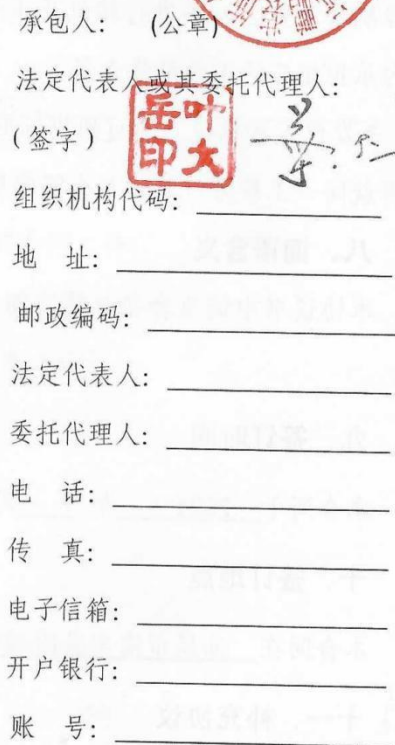 承包人： (公章)
法定代表人或其委托代理人:
(签字)
叶大岳印
组织机构代码:
地 址:
邮政编码:
法定代表人:
委托代理人:
电 话:
传 真:
电子信箱:
开户银行:
账 号: